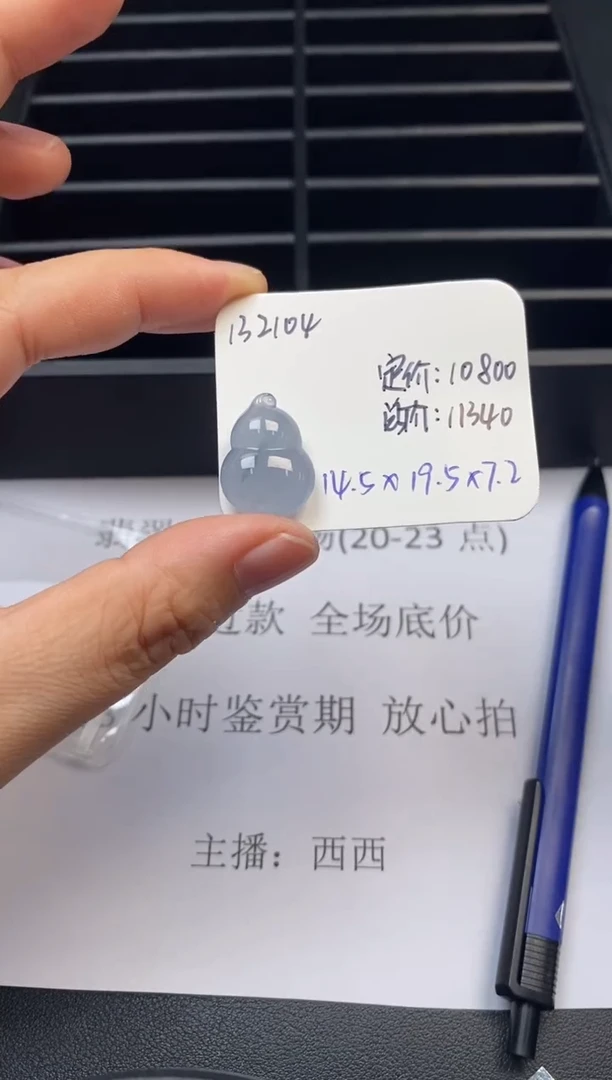 132104
定价：10800
均价：11340
14.5×19.5×7.2
翡翠 场(20-23 点)
过款 全场底价
小时鉴赏期 放心拍
主播：西西